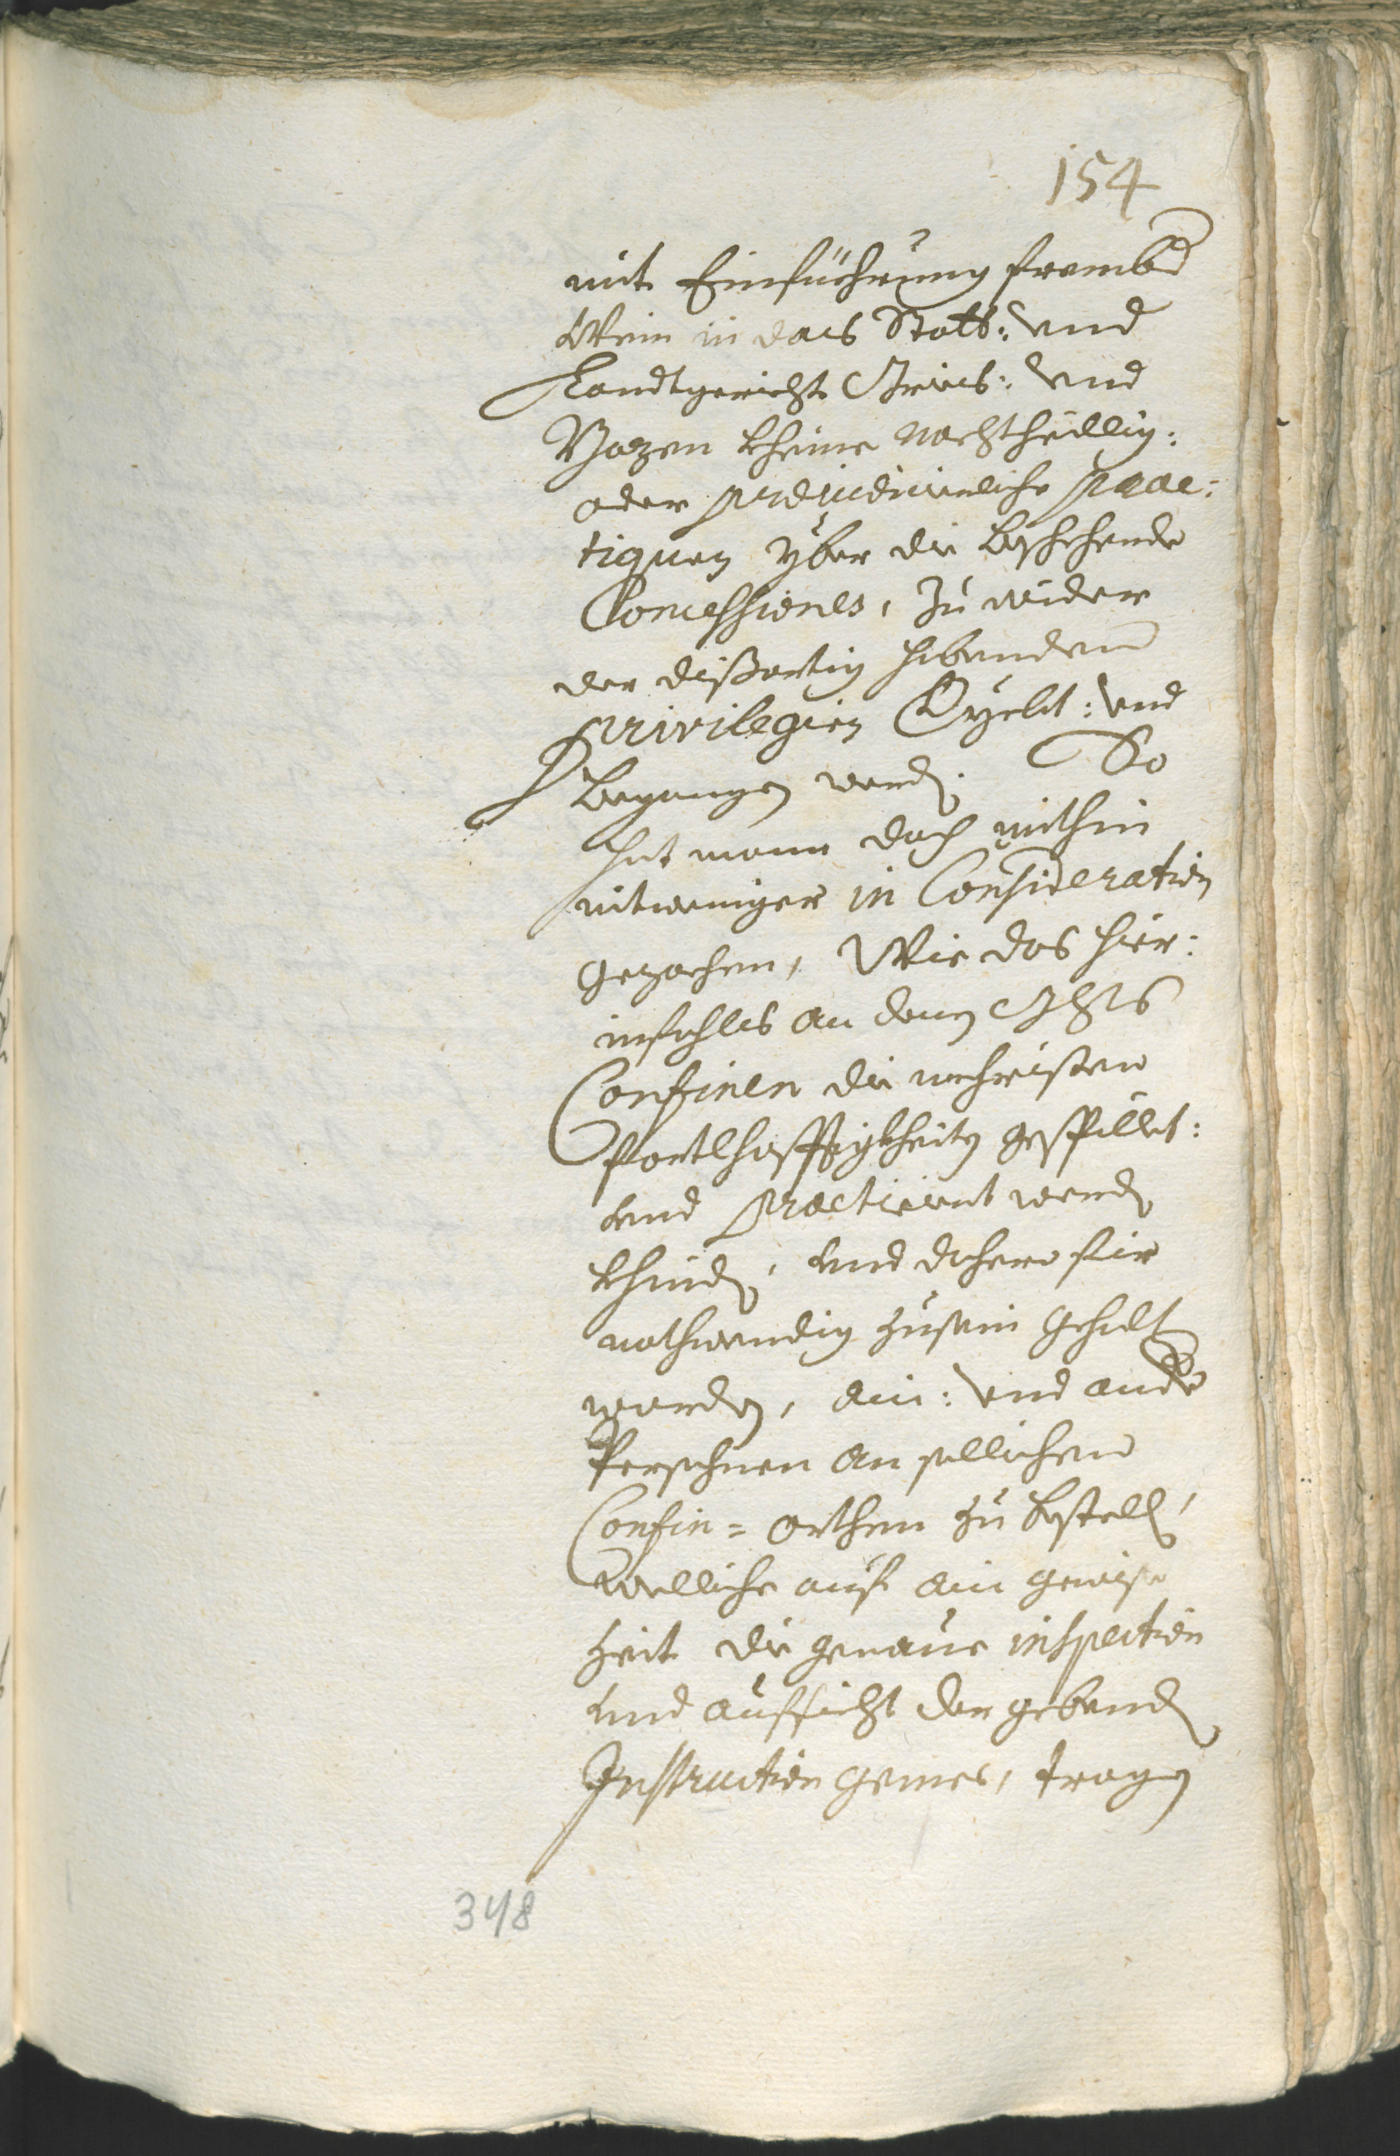 154
mit Einfüehrung frembd
Wein in das Statt: und
Landtgericht Gries: und
Bozen kheine nachtheillig:
oder præiudicierliche prac:
tiquen yber die beschehende
Concessiones, zu wider
der dißortig habenden
Privilegien Gyebt: und
begangen werd. So
hat mann doch mithin
nitweniger in Consideration
gezochen, Wie das hier:
infahls an denen
Confinen die mehristen
Vortlhafftigkheiten gespillet:
und practiciert werden
khinden, und dahero fir
nothwendig zusein gehalt
worden, ain: und andere
Persohnen an sollichen
Confin= orthen zu bestellen,
welliche auf ain gewise
Zeit die genaue inspection
und aufsicht der gebenden
Instruction gemes, tragen
348